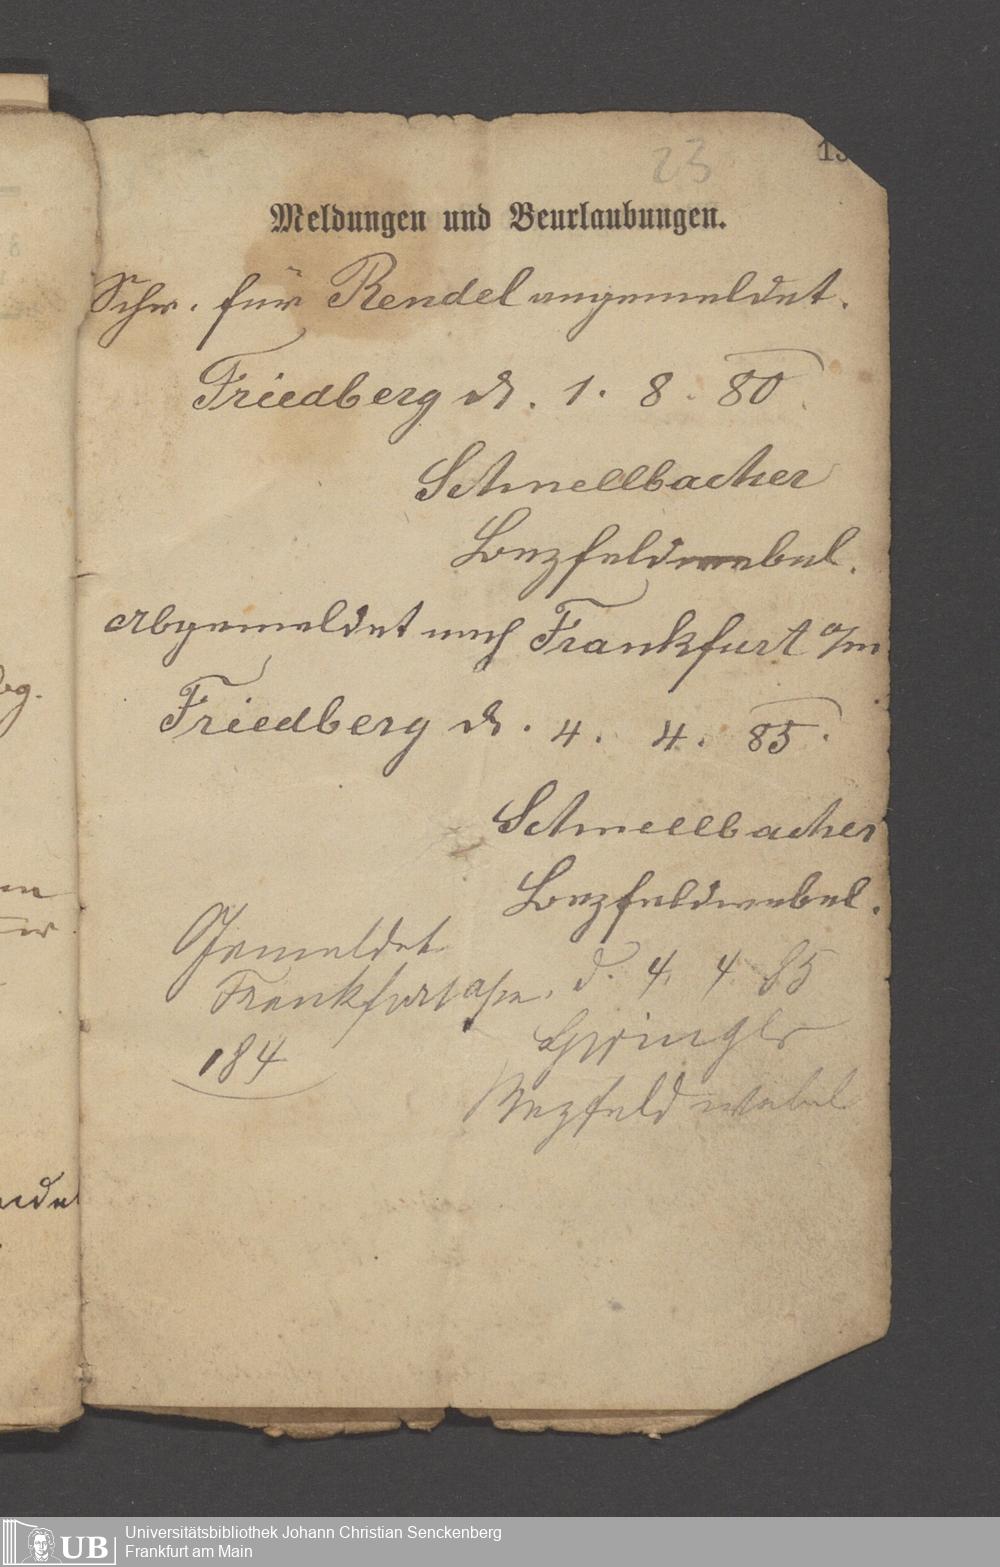 23
Meldungen und Beurlaubungen.
Schr. für Rendel angemeldet.
Friedberg d. 1. 8. 80.
Schnellbacher
Bezfeldwebel.
Abgemeldet nach Frankfurt a/m
Friedberg d. 4. 4. 85.
Schnellbacher
Bezfeldwebel.
Gemeldet
Frankfurt a/m. d. 4. 4. 85
184
Bezfeldwebel
Universitätsbibliothek Johann Christian Senckenberg
UB Frankfurt am Main